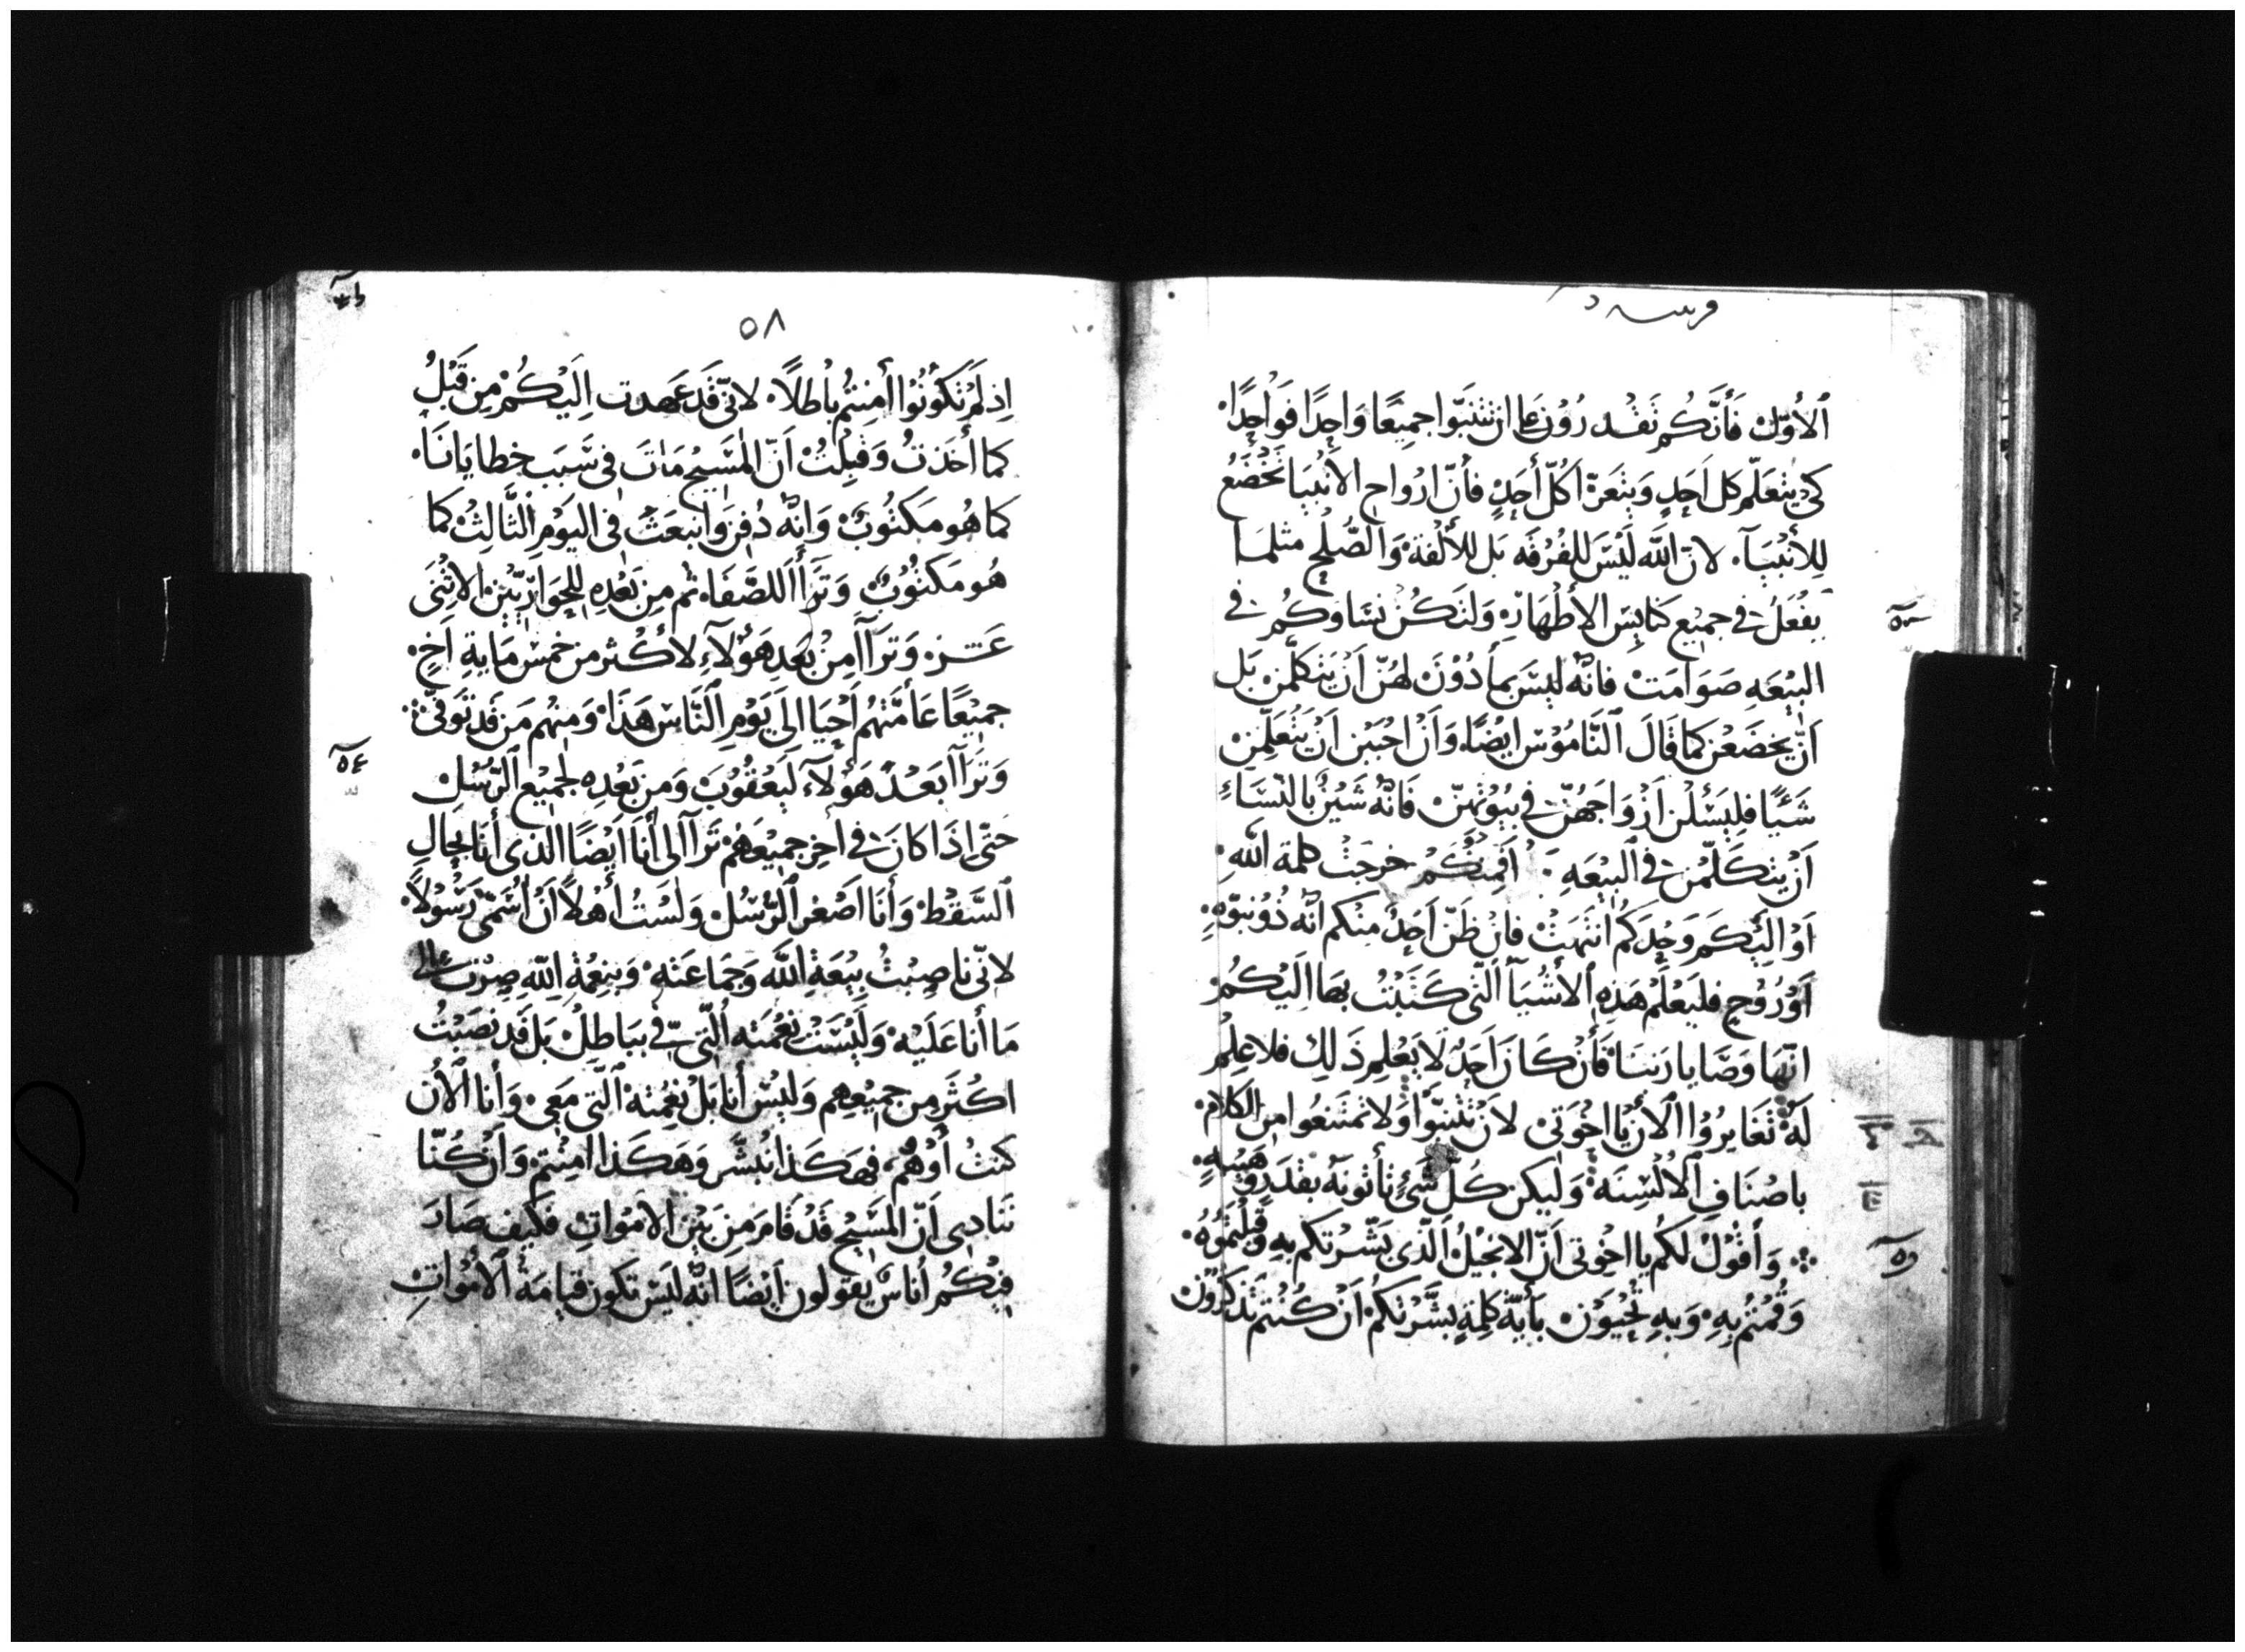 ٱلأُوّلُ فَأَنَّكُم تَقْدرُوْنَ على ان تتنَبّوا جمِيعًا وَاحِدًا فَوَاحِدًا
كي يتعَلّم كل اَحَدٍ وَيتعَزّا كُلّ أَحَدٍ فأنّ ارْواح الأنْبيَا تخْضَعُ
لِلأنْبيَآ لانّ اللّه لَيْسَ للفُرْقَه بَل للأُلْفة وَالصُّلح مثلمَا
يفْعَلُ في جميْع كنايِسَ الأطْهَارِ وَلتَكُنْ نسَاوكُم في
البيْعَهِ صَوَامَتْ فانّه ليْسَ بمأدُوْنَ لهُنّ اَنْ يَتكلّمنَ بَل
اَنّ يخضَعْنَ كما قَالَ النَّامُوْس ايْضًا وَأَنْ احْبَبْنَ اَنْ يَتْعَلّمنَ
شَيًا فليَسْئَلْنَ ازْوَاجَهُنّ في بيُوْتهنّ فَانّه شَيْنٌ بالنّسَاءِ
اَنْ يتكَلّمْنَ في البِيْعَهِ اَفَمِنْكُمْ خرجَتْ كلمة اللّهِ
اَوْ اليْكم وَحْدَكُم انتَهَتْ فانْ ظَنّ اَحَدٌ منكم انّه ذُوْ نبوّهٍ
اَوْ رُوْحٍ فليَعْلَمْ هَذِه الأشْيَآ الّتي كَتَبْتُ بهَا اليْكُمْ
انّهَا وَصَايا رَبنَا فَأنْ كَانَ اَحَدٌ لَا يَعْلم ذَلِك فلا عِلْم
لَهُ تغَايرُوْا الأنْ يَا اخْوَتي لأنْ تتْنبّوا وَلا تمتَنعُوا من الكَلام
باصْنَاف الألْسِنَه وَليكن كُلّ شَيْئ تأتونَهُ بقَدَرٍ وَهَيْبه
وَأَقُوْلُ لَكُم يا اخْوَتي اَنّ الانجيْلُ اَلّذي بَشّرْتكم بهِ وَقبلتُمُوْهُ
وَقُمْتُم بهِ وَبهِ تُحْيَوْنَ بأيّة كلمةٍ بشَّرْتكُمْ اَنْ كُنْتم تَذكرُوْن
٥٨
اِذ لَمْ تَكوُنُوْا أَمنتُم بَاطلاً لانّي قَدْ عَهدت اِليْكُمْ مِن قَبْلُ
كما أَخذتُ وَقبلْتُ اَنّ المسَيح مَاتَ في سَبَب خطايانَا
كما هُو مَكتُوبٌ وَانّه دُفنَ وَانْبعَثَ في اليَوْم الثَّالِثْ كمَا
هُو مَكتُوْبٌ وَتَرَأأَ للصَّفَا ثم مِن بَعْدِه للحَوَارِيّيْن الاثْنَى
عَشر وَتَرَآأ مِنْ بَعدِ هَؤلآءِ لأكْثر من خمْس مَايةِ اَخٍ
جميْعًا عَامّتهُم أَحْيَا الى يَوْم النَّاس هَذَا وَمنهُم مَن قَد تَوَفّي
وَتَرَآأ بَعْدَ هَؤُلآءِ ليَعْقُوْبَ وَمن بَعْدِه لجميْع الرّسُل
حَتّى اذَا كَانَ في اَخر جميْعَهُمْ تَرَآأ لي أَنَا اَيضًا الذي أَنَا بحَالِ
السَّقْط وَأَنَا اَصْغر الرُّسُل وَلَسْتُ أَهْلاً اَنْ اُسَمّى رَسُوْلاً
لانّي ناصبْتُ بيْعَة اللّه وَجَمَاعَته وَبنعْمةِ اللّهِ صِرْتُ الى
مَا أَنا عَلَيْه وَلَيْسَتْ نعْمَته الّتي فيّ ببَاطِلْ بَل قَد نصَبْتُ
اكْثَر مِن جميْعِهم وَليْسَ أَنا بَلْ نعْمته الّتي مَعي وَأنا الأن
كنتُ أَوْ هُمْ فهكَذا نُبشّر وَهكَذا امنْتم وَأنْ كُنّا
نُنَادي اَنّ المسَيْحَ قَدْ قَامَ مِنْ بَيْن الأمْوَاتِ فكَيْف صَارَ
فيْكُم أُناسٌ يَقولون اَيْضًا انّهُ ليسَ تكون قيامَة الأمْوَاتِ